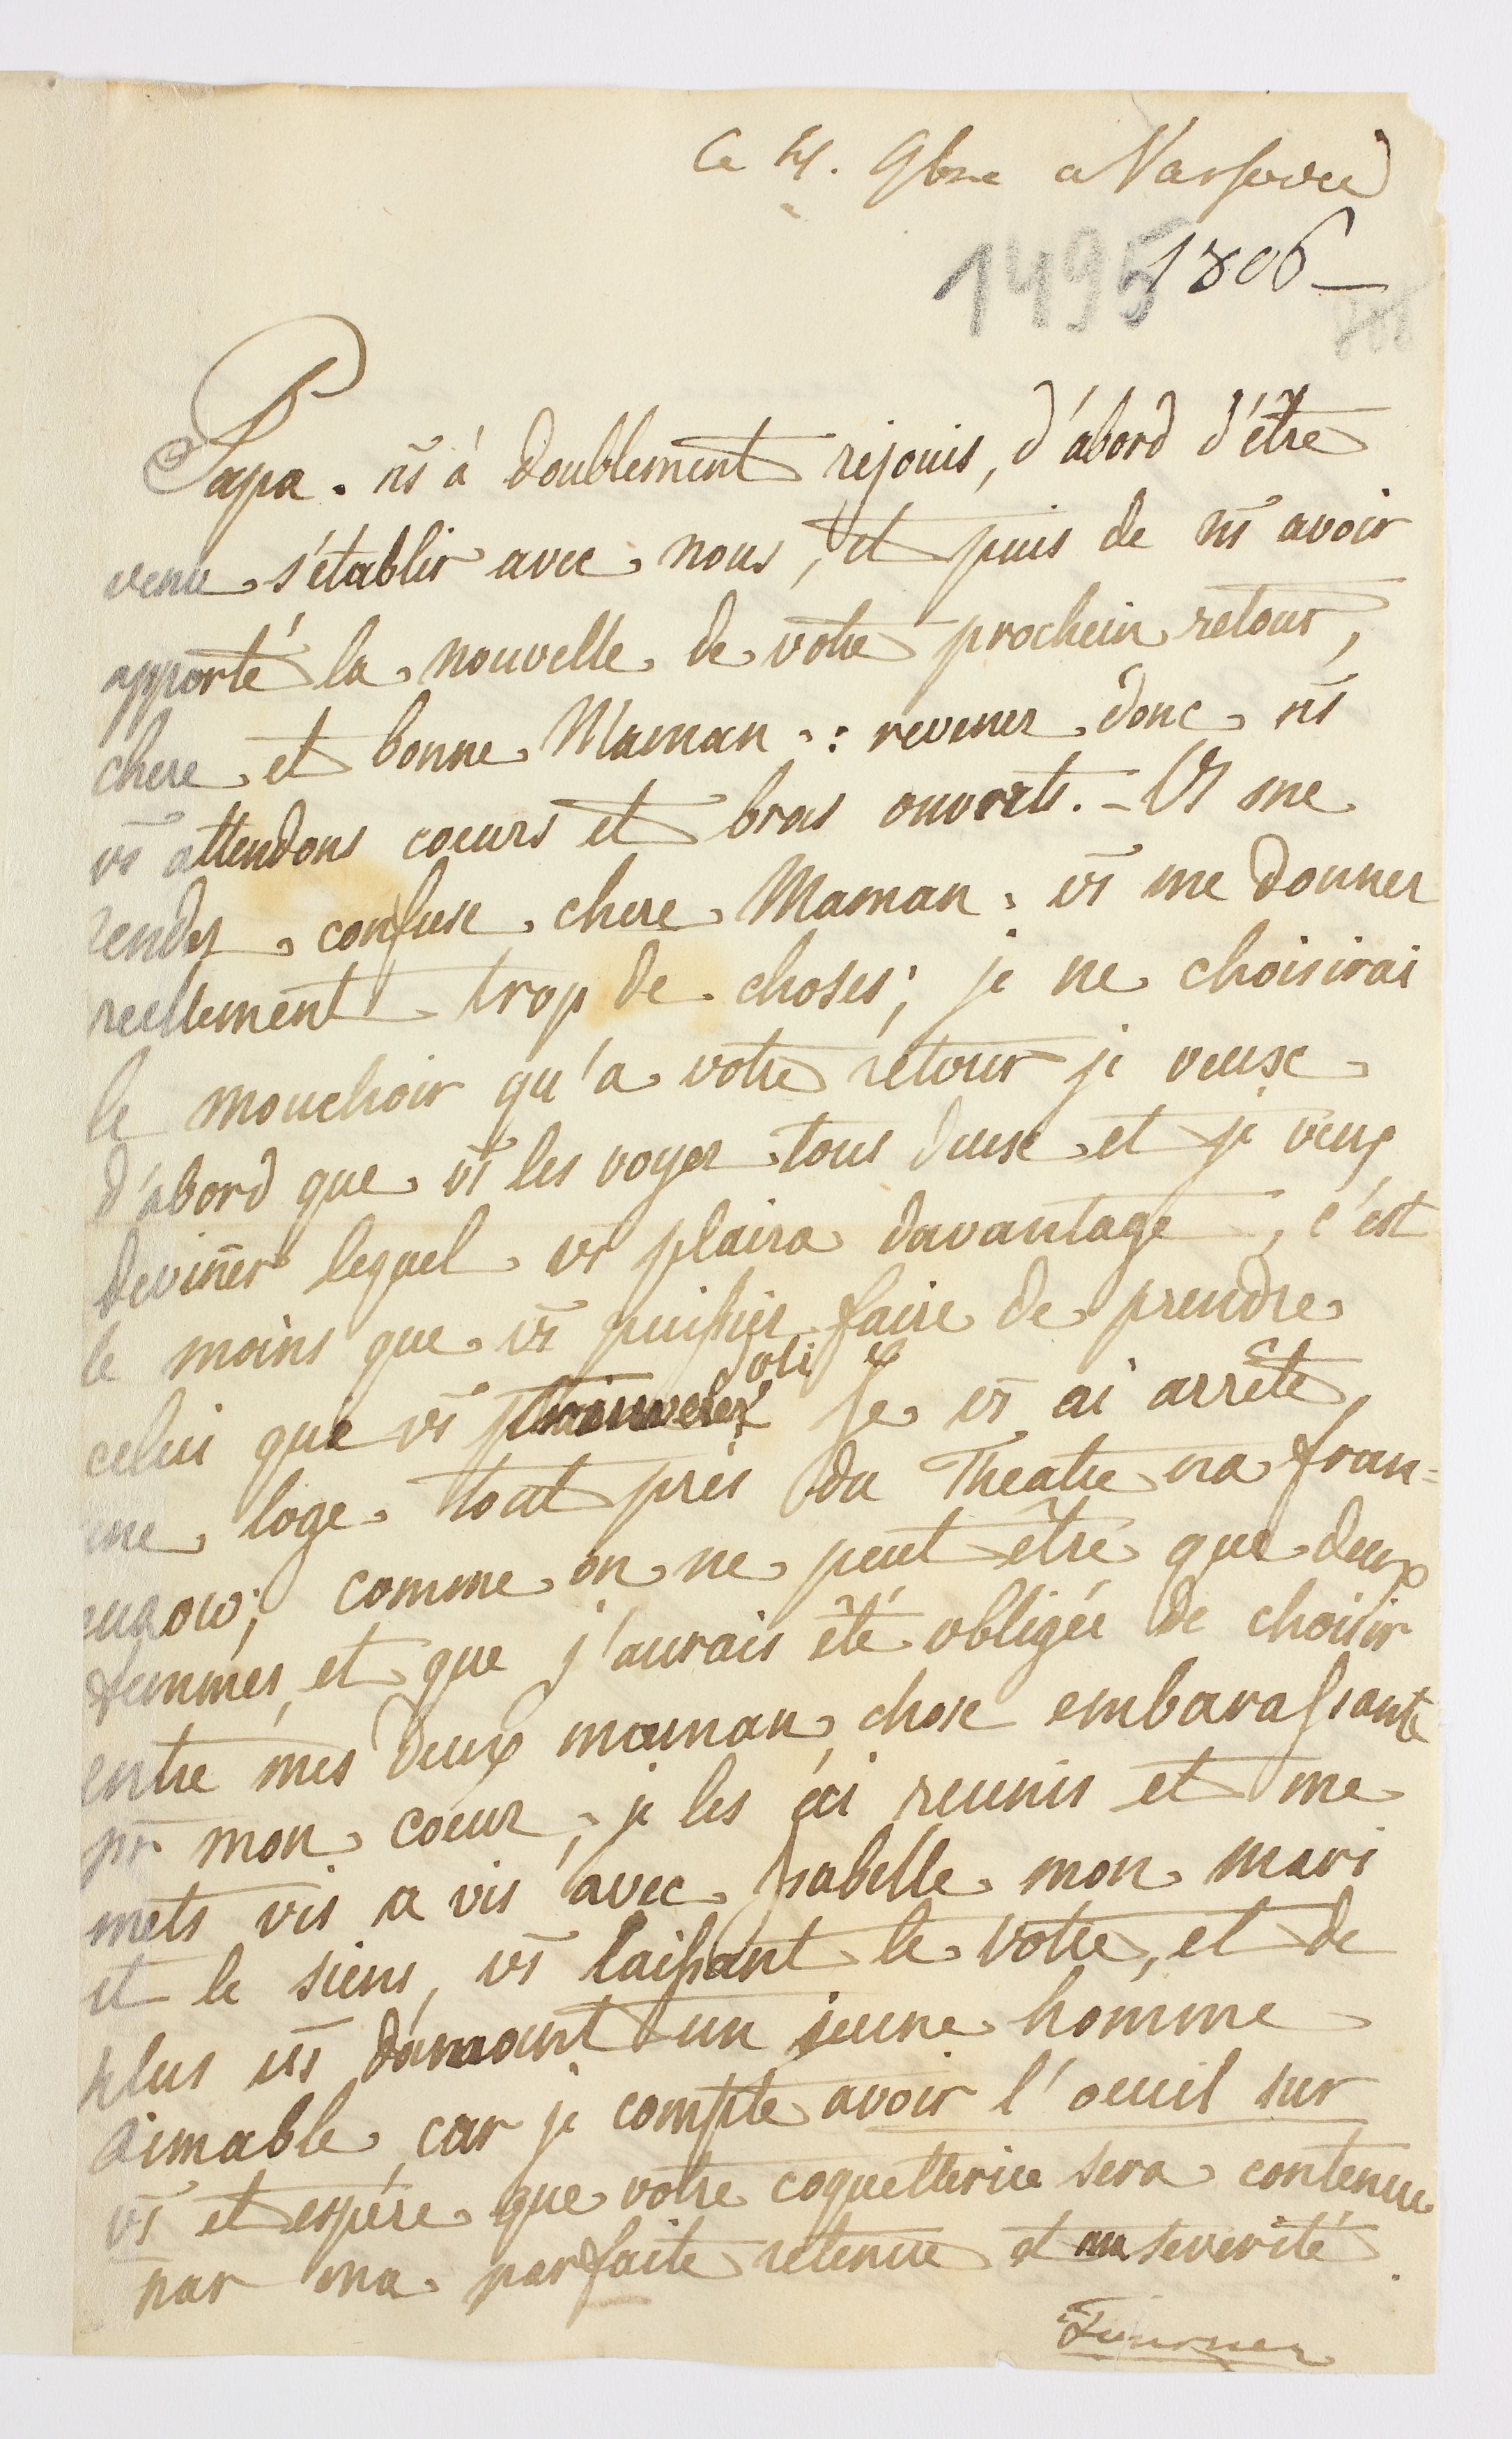 Ce 4. 9bre a Varsovie
1495 1806 —
Papa. ns à doublement rejouis, d'ábord d'être
venu s'établir avec nous, et puis de ns avoir
apporté la nouvelle de votre prochein retour,
chere et bonne Maman: revener donc ns
vs attendons coeurs et bras ouverts. - Vs me
rendez confuse chere Maman. vs me donner
reellement trop de choses; je ne choisirai
le mouchoir qu'a votre retour je veuse
d'abord que vs les voyer tous deuse et je veux
deviner lequel vs plaira davantage, c'est
le moins que vs puissiez faire de prendre
joli
celui que vs trouverez Je vs ai arrêté
une loge tout près du Theatre na fran=
cuzow; comme on ne peut être que deux
femmes, et que j'aurais été obligée de choisir
entre mes deux maman, chose embarassante
pr mon coeur, je les ai reunis et me
mets vis a vis avec Isabelle mon mari
et le siens, vs laissant le votre, et de
plus vs donnant un jeune homme
aimable, car je compte avoir l'oeuil sur
vs et espére que votre coquetterice sera contenue
par ma parfaite retenue et ma severité.
Tournez